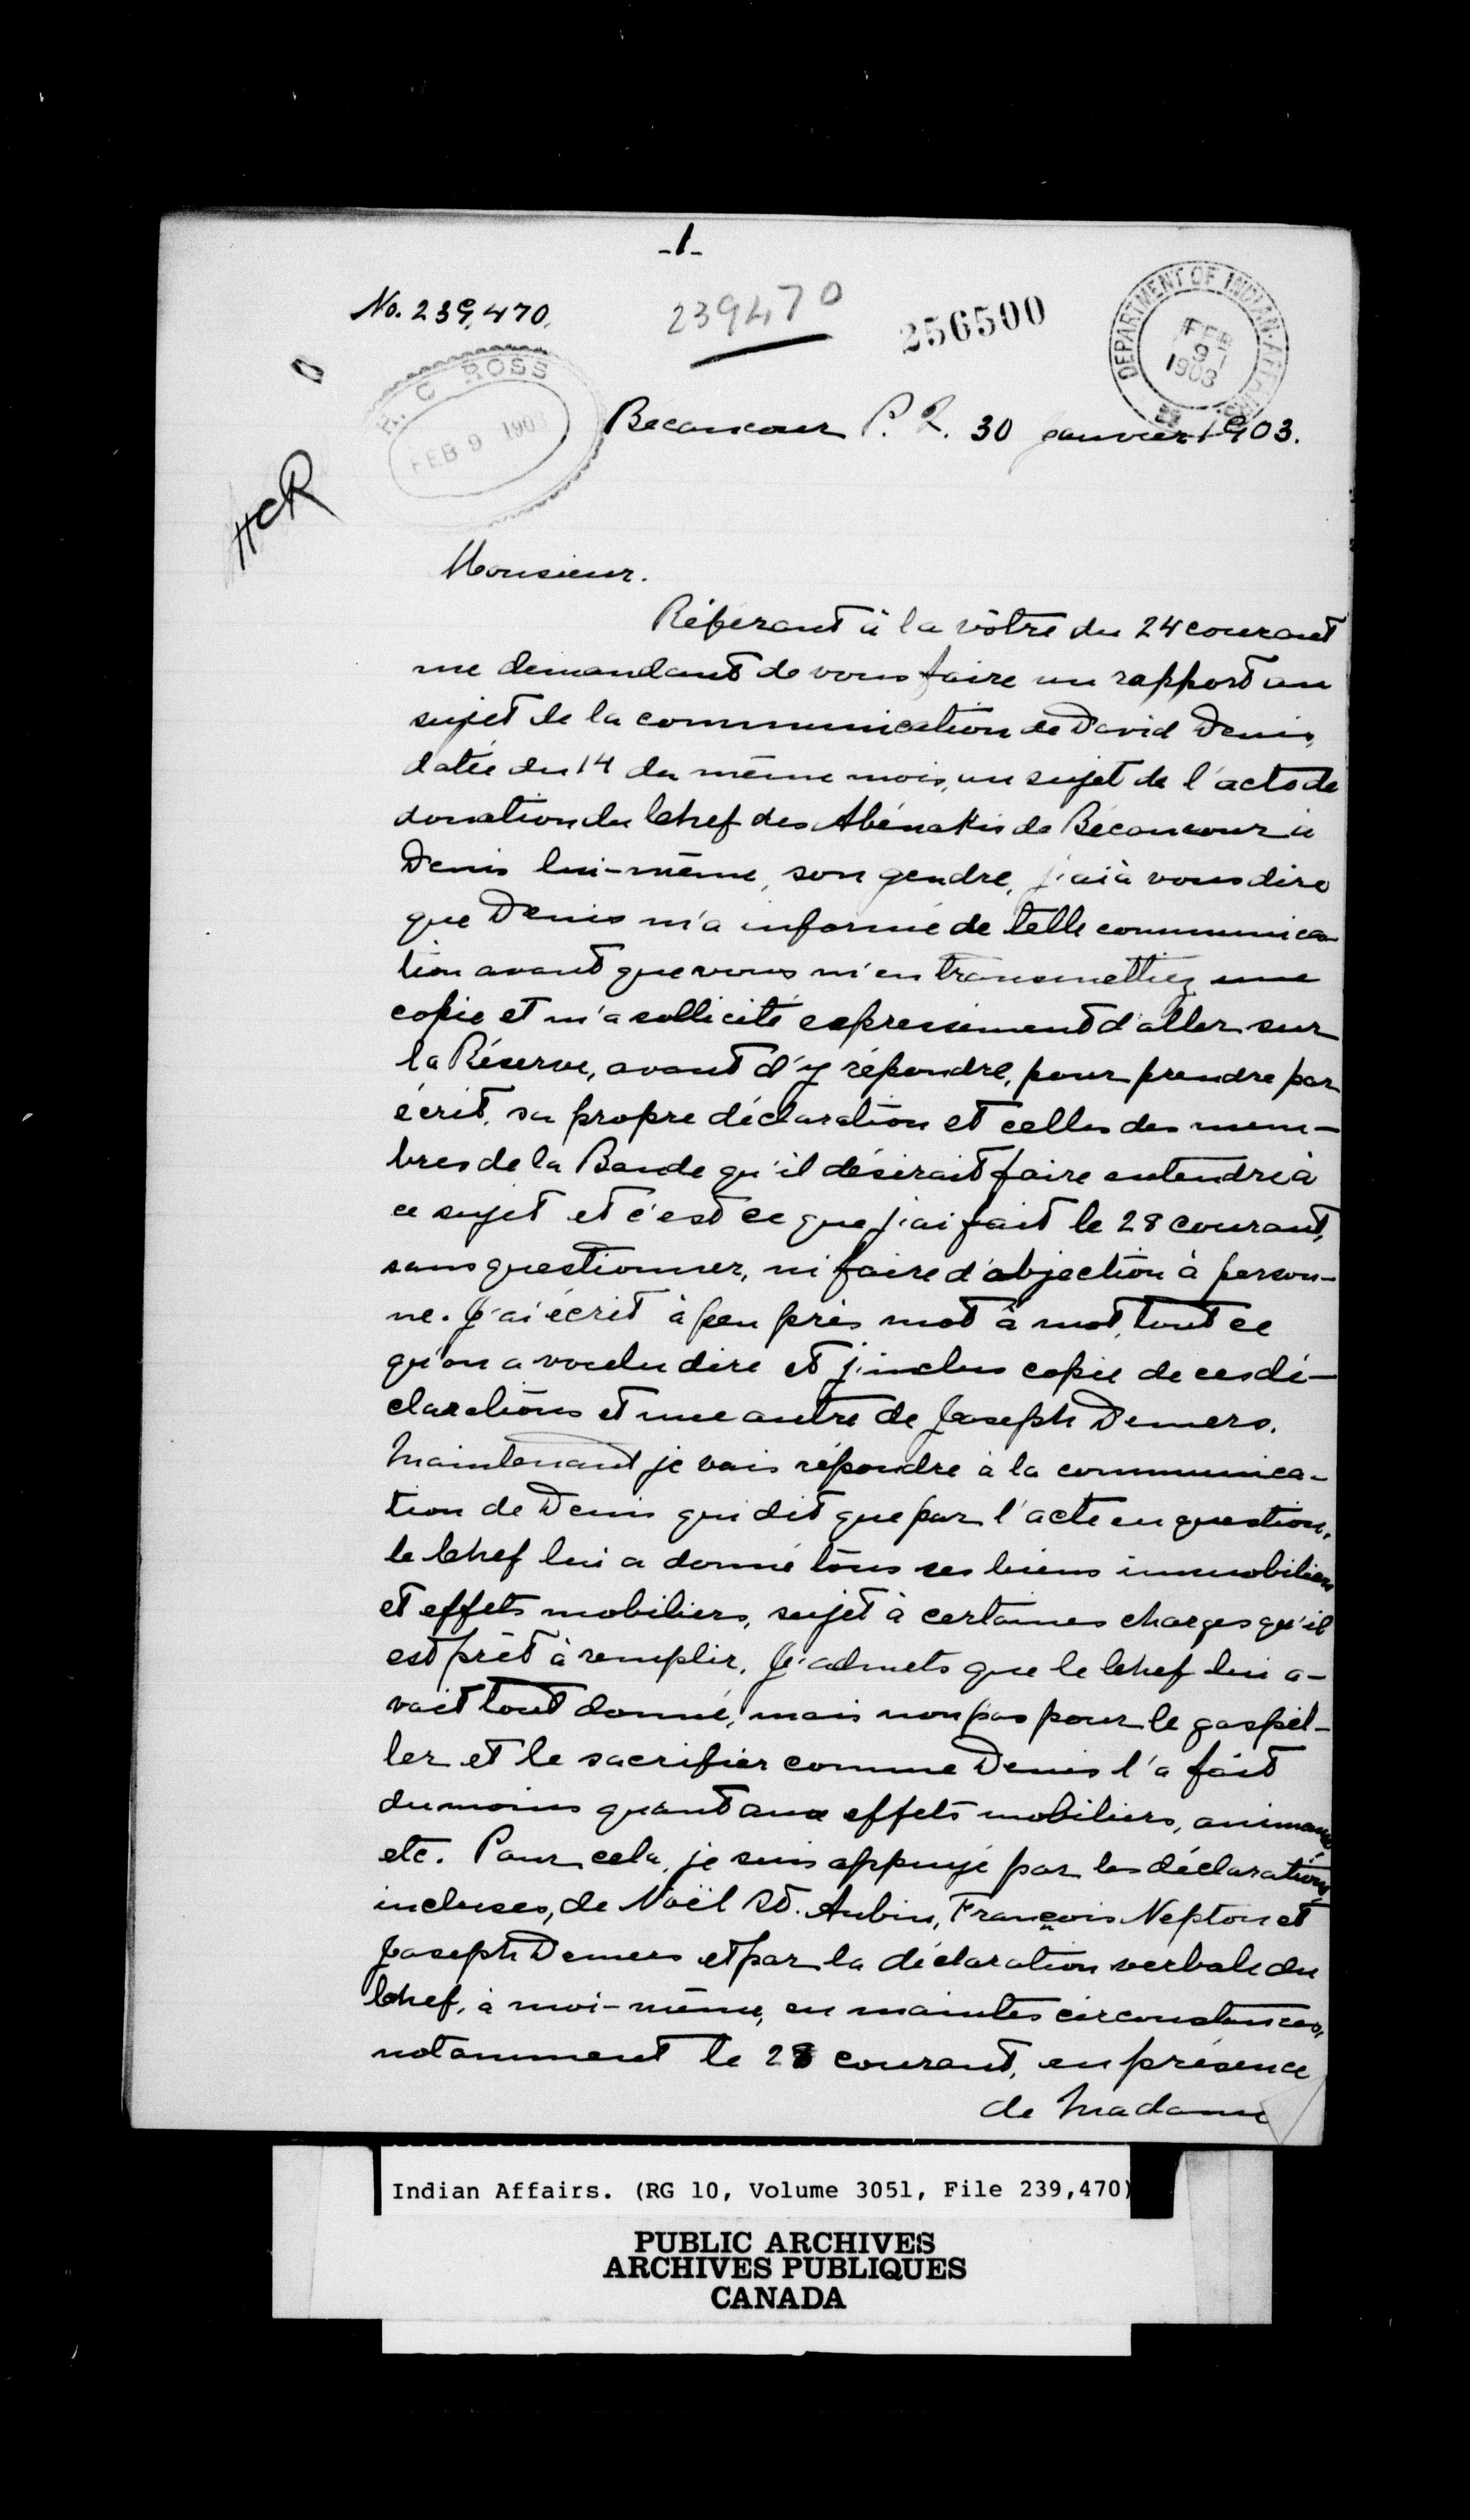 -1-
No. 239,470.
239470
256500
DEPARTMENT OF INDIAN AFFAIRS
FEB
9
1903
H. C ROSS
FEB 9 1903
HCR
Becancour P. Q. 30 janvier 1903.
Monsieur.
Référant à la vôtre du 24 courant
me demandant de vous faire un rapport au
sujet de la communication de David Denis,
datée du 14 du même mois, au sujet de l'acte de
donation du Chef des Abénakis de Bécancour à
Denis lui-même, son gendre, j'ai à vous dire
que Denis m'a informé de telle communica-
tion avant que vous m'en transmettiez une
copie et m'a sollicité expressément d'aller sur
la Réserve, avant d'y répondre, pour prendre par
écrit, sa propre déclaration et celles des mem-
bres de la Bande qu'il désirait faire entendre à
ce sujet et c'est ce que j'ai fait le 28 courant,
sans questionner, ni faire d'objection à person-
ne. J'ai écrit à peu près mot à mot, tout ce
qu'on a voulu dire et j'inclus copie de ces dé-
clarations et une autre de Joseph Demers.
Maintenant je vais répondre à la communica-
tion de Denis qui dit que par l'acte en question,
le Chef lui a donné tous ses biens immobiliers
et effets mobiliers, sujet à certaines charges qu'il
est prêt à remplir. J'admets que le Chef lui a-
vait tout donné, mais non pas pour le gaspil-
ler et le sacrifier comme Denis l'a fait
du moins quant aux effets mobiliers, animaux,
etc. Pour cela, je suis appuyé par les déclarations
incluses, de Noël St. Aubin, François Nepton et
Joseph Demers et par la déclaration verbale du
Chef, à moi-même, en maintes circonstances,
notamment le 28 courant, en présence
de Madame
Indian Affairs. (RG 10, Volume 3051, File 239,470)
PUBLIC ARCHIVES
ARCHIVES PUBLIQUES
CANADA